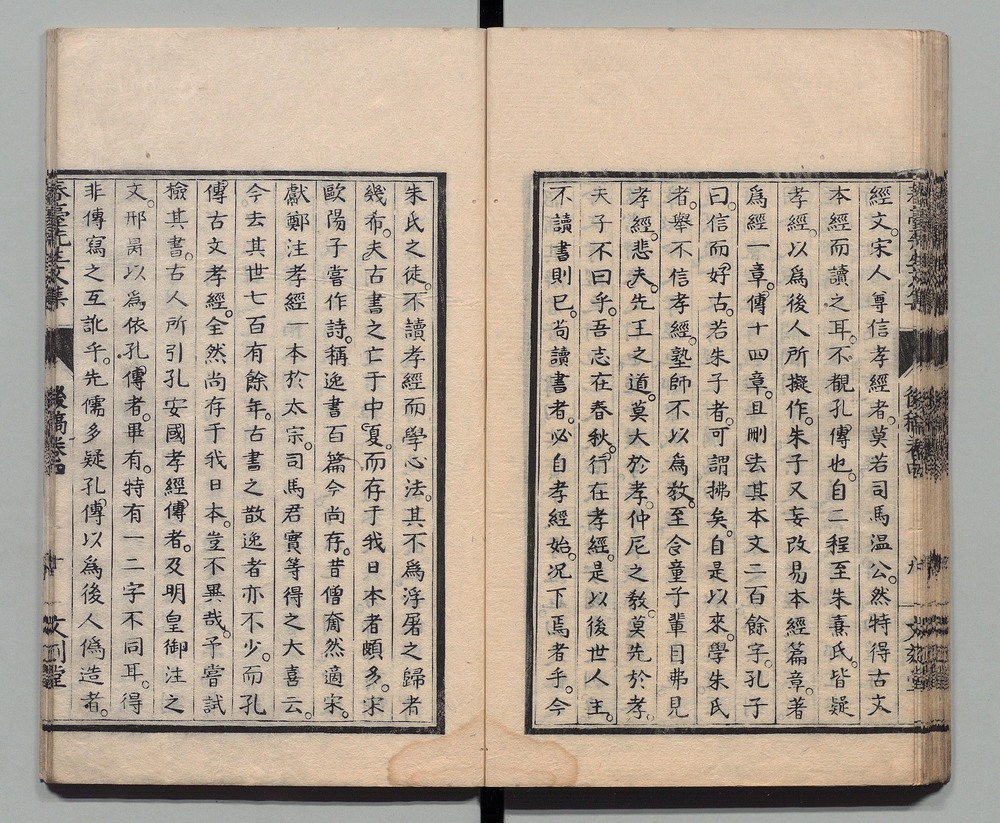 經文。宋人尊信孝經者。莫若司馬温公。然特得古文
本經而讀之耳。不覩孔傳也。自二程至朱熹氏。皆疑
孝經。以爲後人所擬作。朱子又妄改易本經篇章。著
爲經一章。傳十四章。且刪去其本文二百餘字。孔子
曰。信而好古。若朱子者。可謂拂矣。自是以來。學朱氏
者。舉不信孝經。塾師不以爲教。至令童子輩目弗見
孝經。悲夫。先王之道。莫大於孝。仲尼之教。莫先於孝。
夫子不曰乎。吾志在春秋。行在孝經。是以後世人主。
不讀書則已。苟讀書者。必自孝經始。况下焉者乎。今
後稿卷
朱氏之徒。不讀孝經而學心法。其不爲浮屠之歸者
幾希。夫古書之亡于中夏。而存于我日本者頗多。宋
歐陽子嘗作詩。稱逸書百篇今尚存。昔僧奝然適宋。
獻鄭注孝經一本於太宗。司馬君實等得之大喜云。
今去其世七百有餘年。古書之散逸者亦不少。而孔
傳古文孝經。全然尚存于我日本。豈不異哉。予嘗試
檢其書。古人所引孔安國孝經傳者。及明皇御注之
文。邢昺以爲依孔傳者。畢有。特有一二字不同耳。得
非傳寫之互訛乎。先儒多疑孔傳以爲後人僞造者。
後稿卷
十